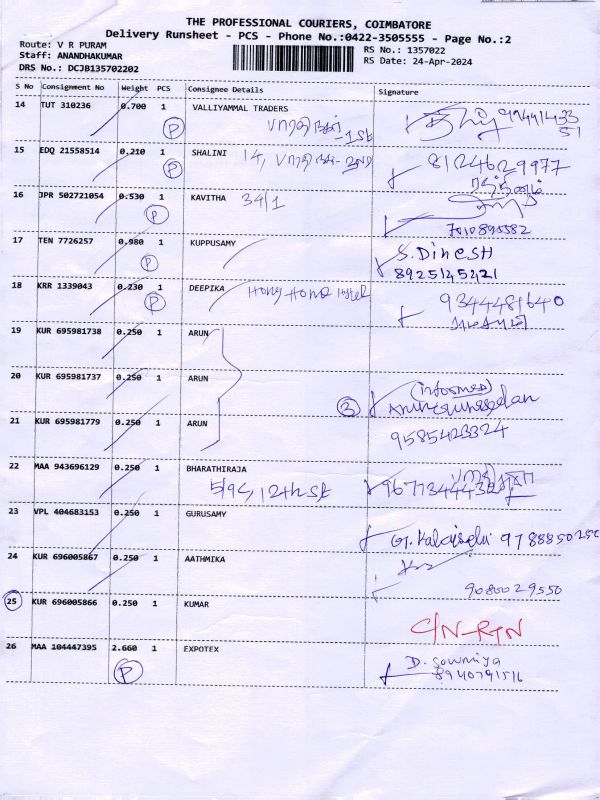 THE PROFESSIONAL COURIERS, COIMBATORE
Delivery Runsheet - PCS - Phone No.:0422-3505555 - Page No.:2
Route: V R PURAM
RS No.: 1357022
Staff: ANANDHAKUMAR
RS Date: 24-Apr-2024
DRS No.: DCJB135702202
S No Consignment No Weight PCS Consignee Details Signature
14 TUT 310236 0.700 1 VALLIYAMMAL TRADERS
P
15 EDQ 21558514 0.210 1 SHALINI 14, 8124629977
P
16 JPR 502721054 0.530 1 KAVITHA 34/1
P
17 TEN 7726257 0.980 1 KUPPUSAMY S. DINESH
P 8925145421
18 KRR 1339043 0.230 1 DEEPIKA 9344481640
P
19 KUR 695981738 0.250 1 ARUN
20 KUR 695981737 0.250 1 ARUN (informed)
3
21 KUR 695981779 0.250 1 ARUN 9585423324
22 MAA 943696129 0.250 1 BHARATHIRAJA
5/9C, 12th St
23 VPL 404683153 0.250 1 GURUSAMY
24 KUR 696005867 0.250 1 AATHMIKA
9080029550
25 KUR 696005866 0.250 1 KUMAR
C/N-RTN
26 MAA 104447395 2.660 1 EXPOTEX D. Sowmiya
P 8940791516